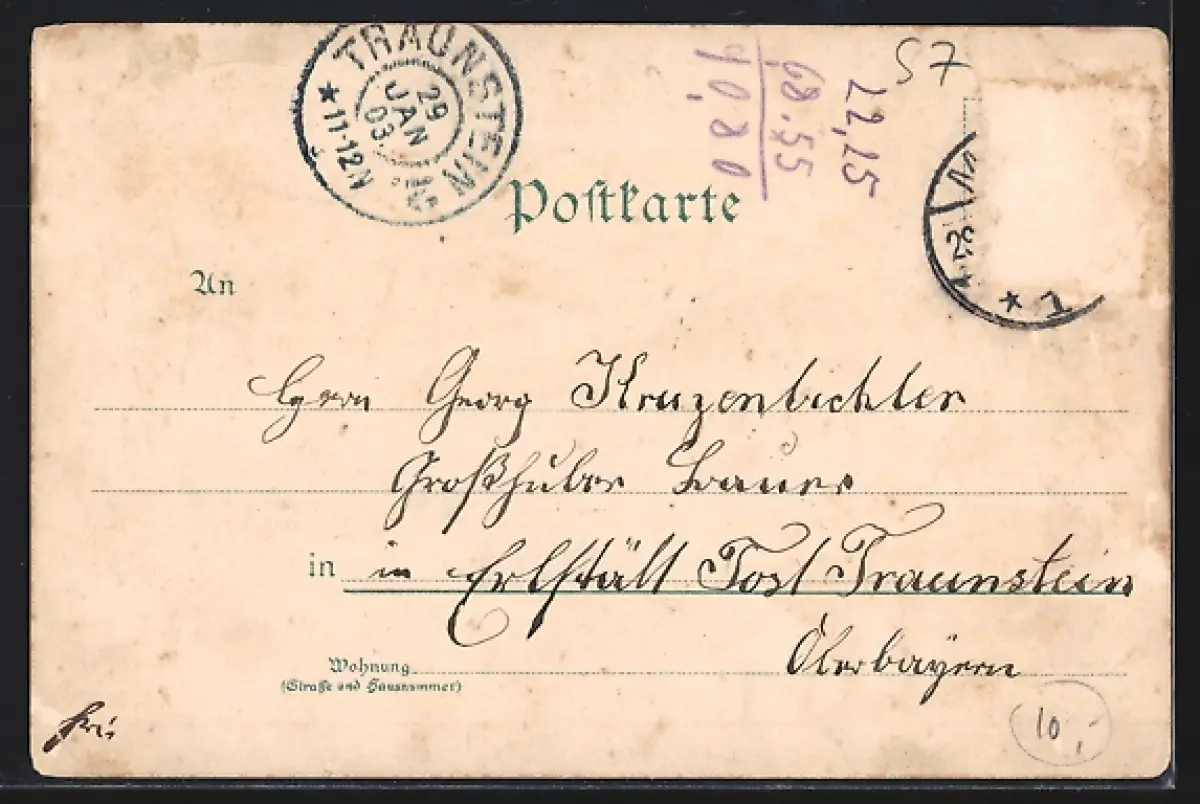 TRAUNSTEIN
29
JAN
03.
★ 11-12N
57
22,25
68.55
90,80
Postkarte
An
Herrn Georg Kruzenbichler
Großhuber Bauer
in in Erlstätt Post Traunstein
Oberbayern
Wohnung
(Straße und Hausnummer)
frei
10,-